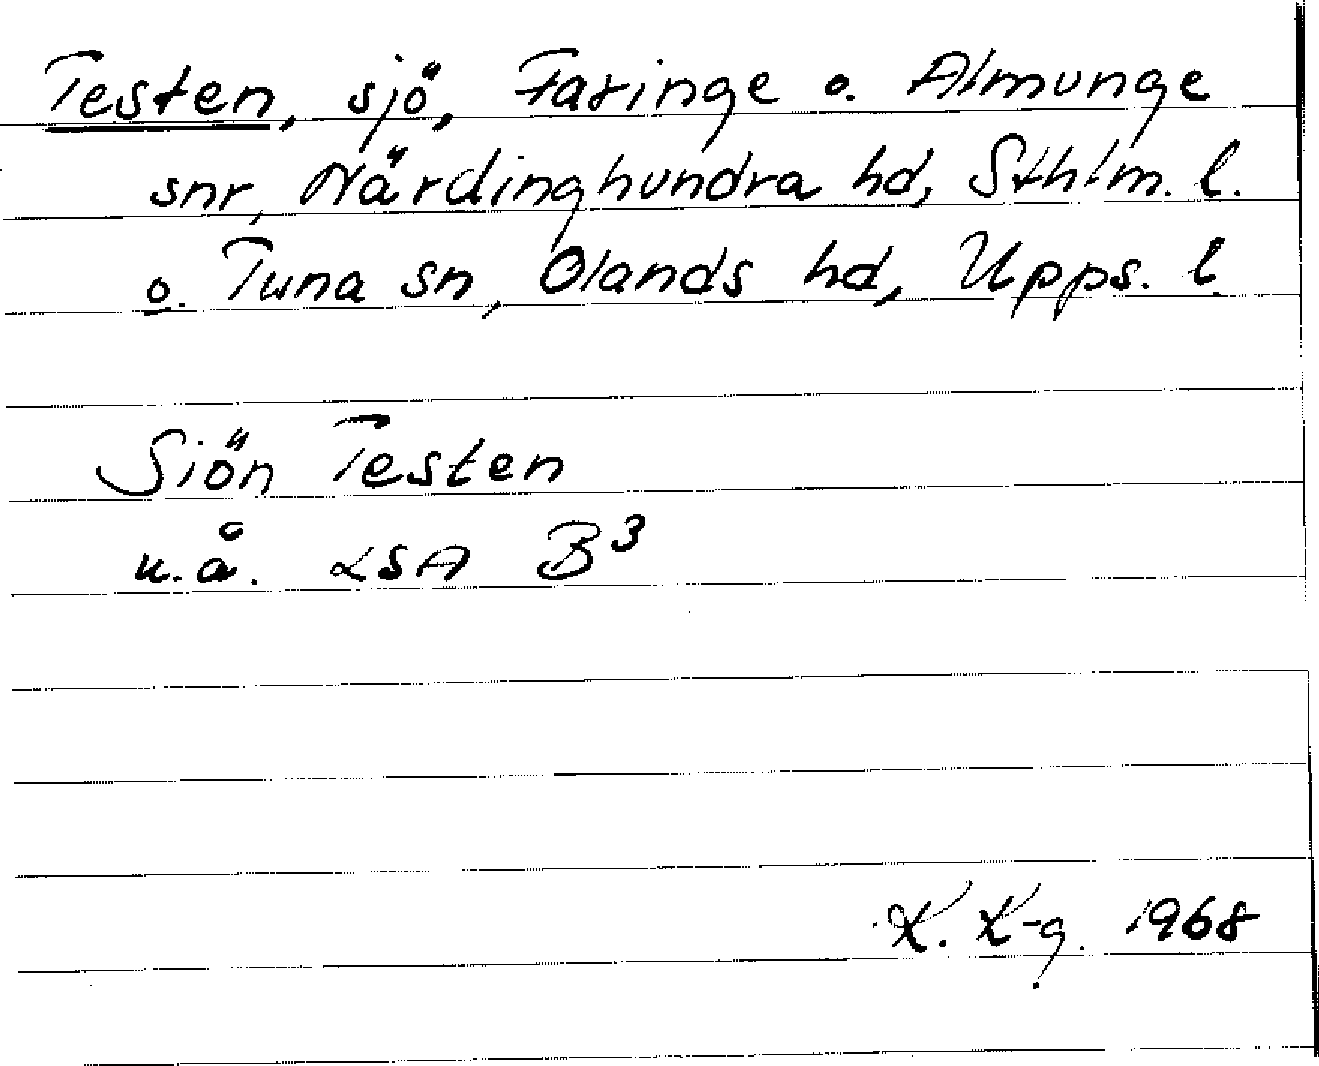 Testen, sjö, Faringe o. Almunge
snr, Närdinghundra hd, Sthlm. l.
o. Tuna sn, Olands hd, Upps. l.
Siön Testen
u.å. LSA B³
K. K-g. 1968